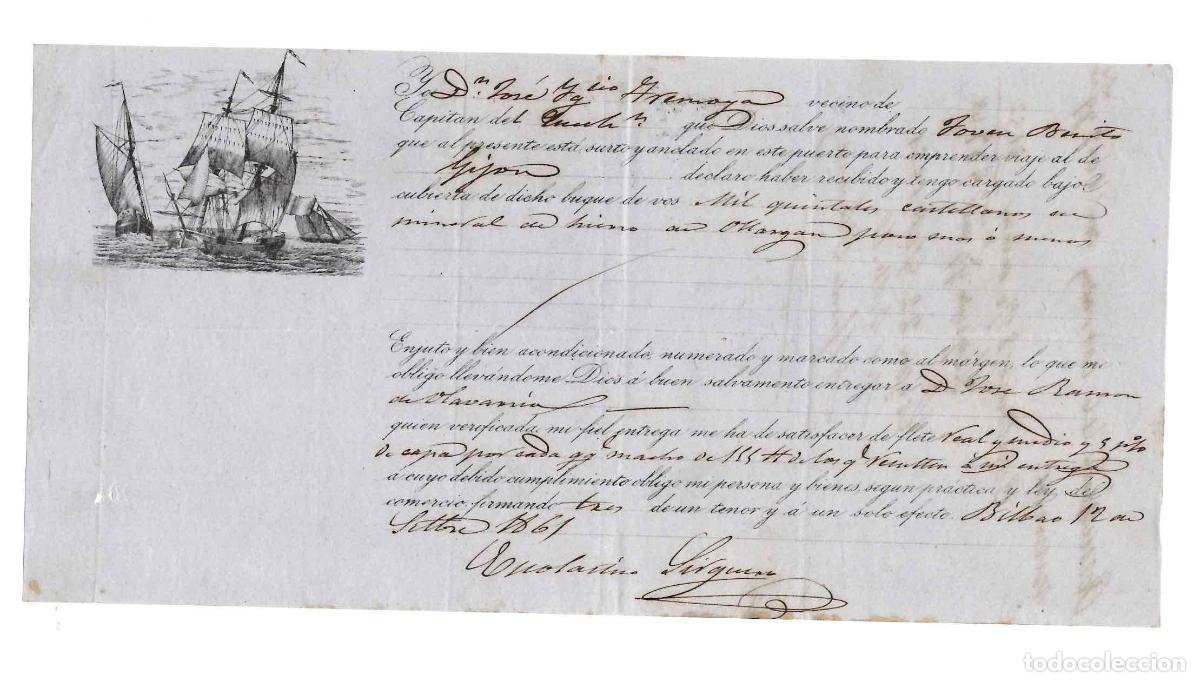 Yo Dⁿ José Ygⁿⁱᵒ vecino de
Capitan del que Dios salve nombrado Joven Benito
que al presente está surto y anclado en este puerto para emprender viaje al de
Gijon declaro haber recibido y tengo cargado bajo
cubierta de dicho buque de vos Mil quintales castellanos de
mineral de hierro de poco mas ó menos
Enjuto y bien acondicionado, numerado y marcado como al márgen, lo que me
obligo llevándome Dios á buen salvamento entregar á D. Jose Ramon
de Olavarria
quien verificada mi fiel entrega me ha de satisfacer de flete real y medio y 5 p%
de capa por cada qq macho de 155 de los q
á cuyo debido cumplimiento obligo mi persona y bienes, segun práctica y ley de
comercio, firmando tres de un tenor y á un solo efecto. Bilbao 12 de
Setbre 1861
todocoleccion